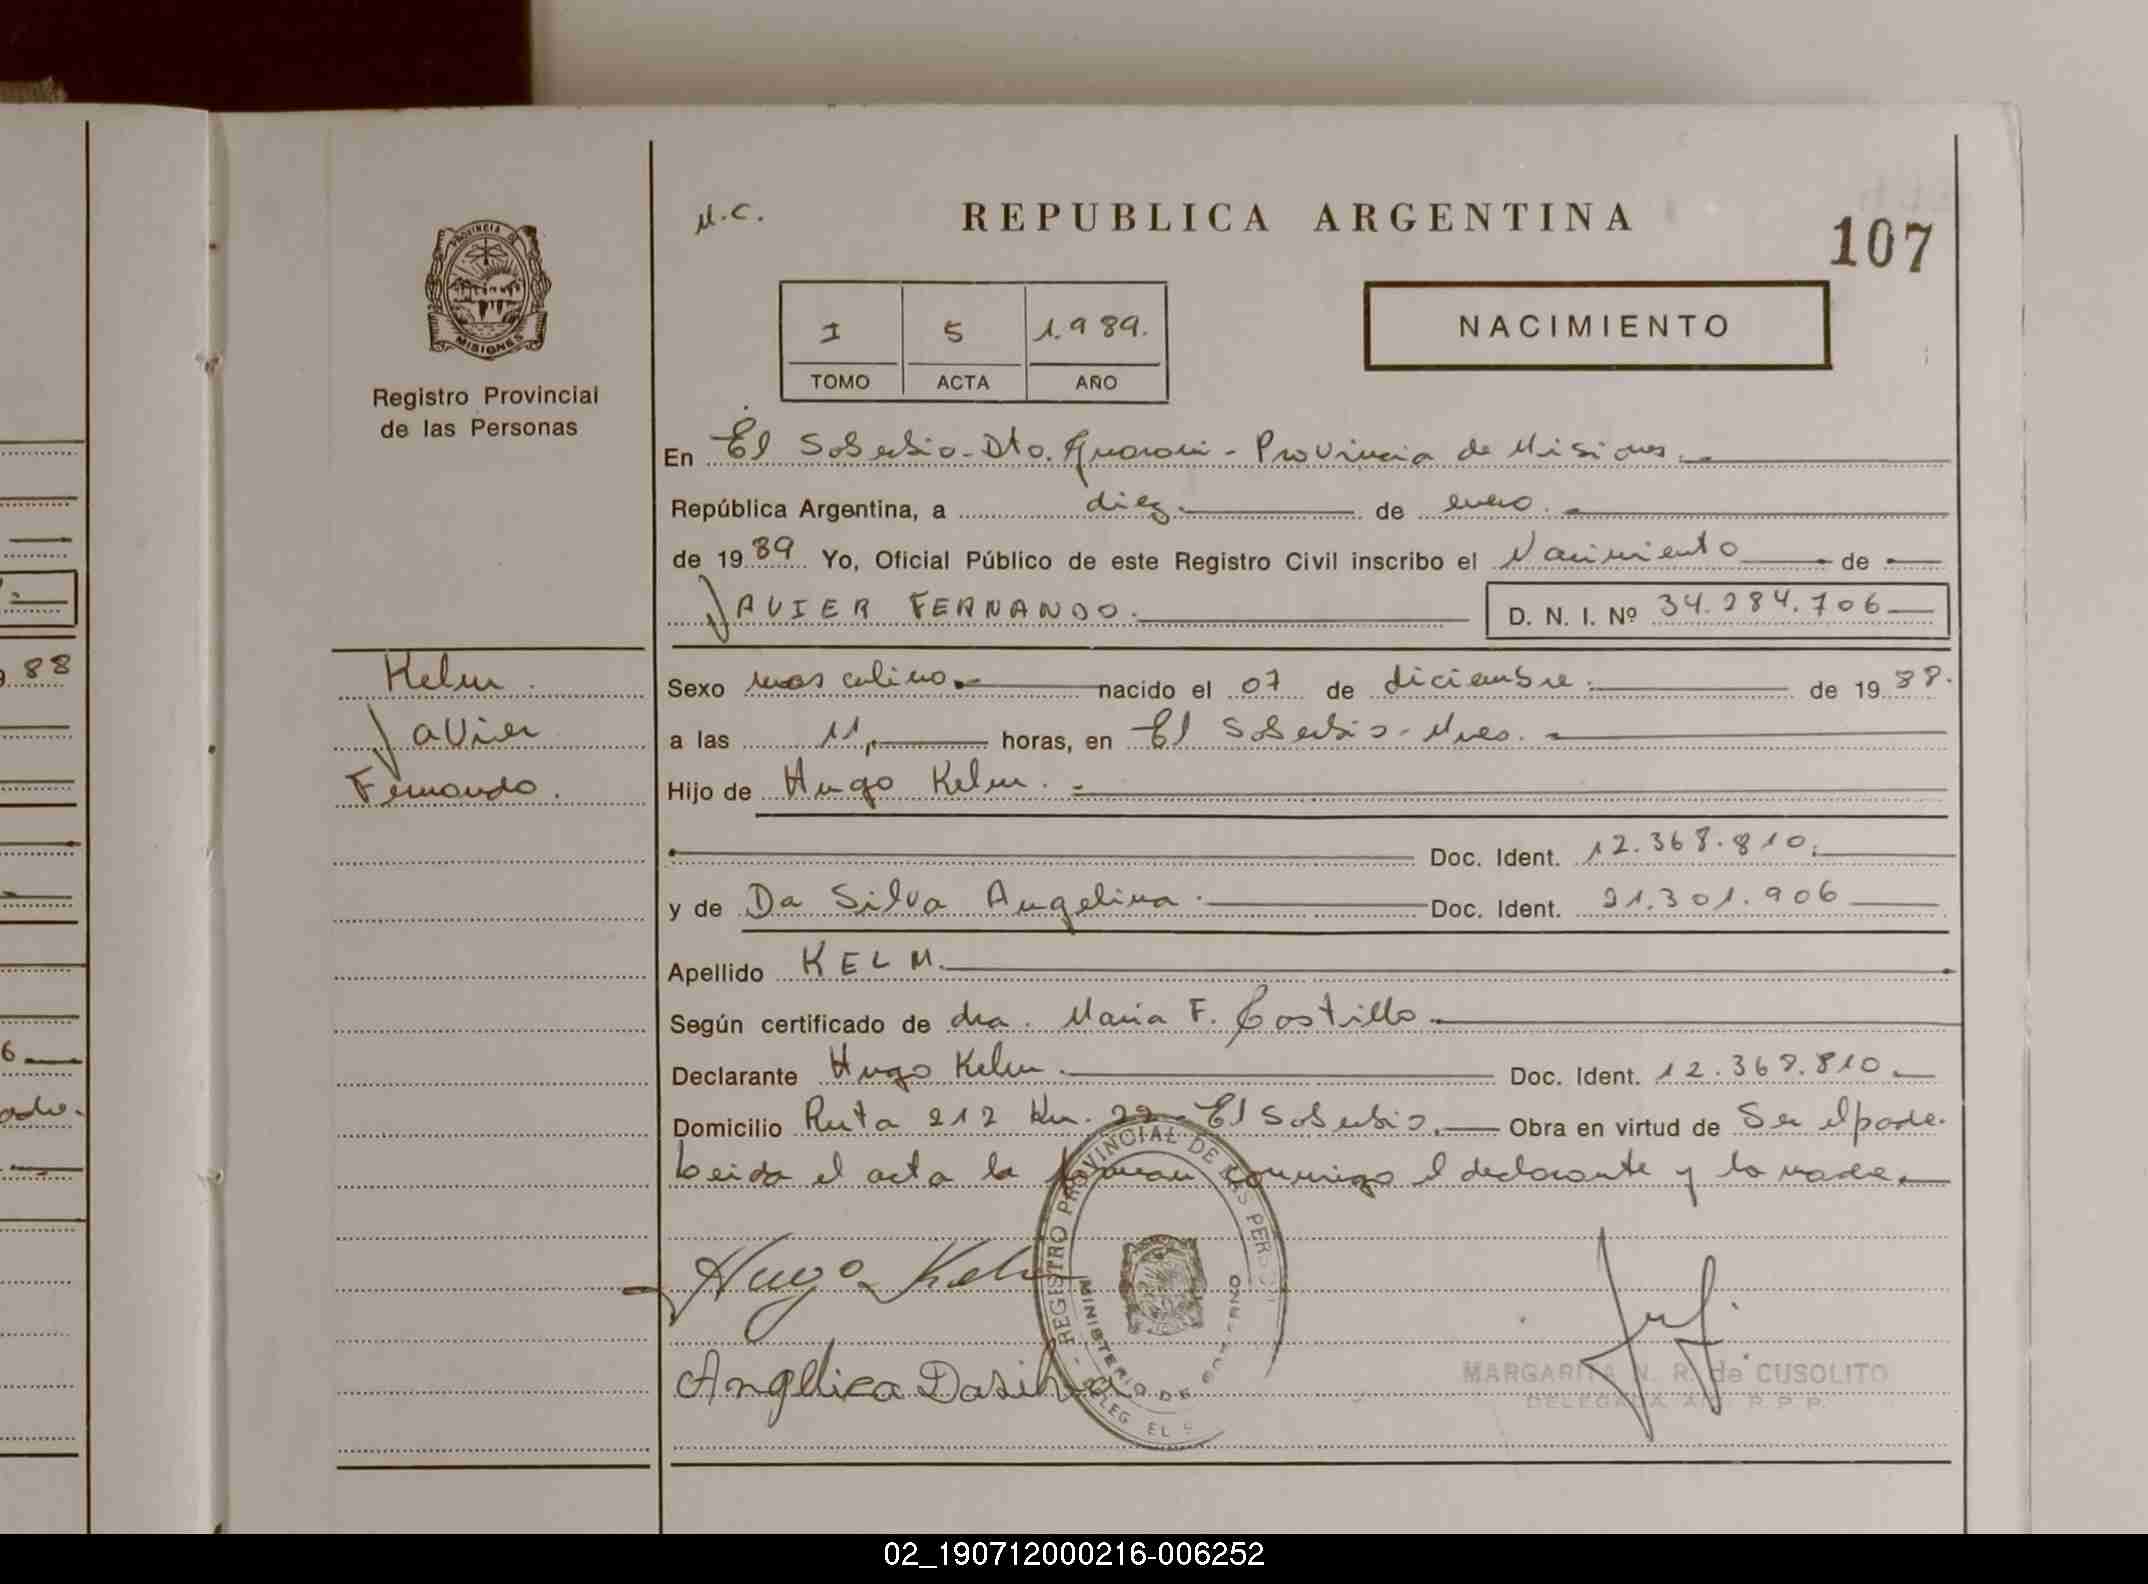 PROVINCIA DE
MISIONES
Registro Provincial
de las Personas
Kelm.
Javier
Fernando.
M.C.
REPUBLICA ARGENTINA
107
I 5 1.989.
TOMO ACTA AÑO
NACIMIENTO
En El Soberbio-Dto. Guarani-Provincia de Misiones.
República Argentina, a diez de enero.
de 1989 Yo, Oficial Público de este Registro Civil inscribo el Nacimiento de
JAVIER FERNANDO.
D. N. I. Nº 34.284.706
Sexo masculino. nacido el 07 de diciembre. de 1988.
a las 11, horas, en El Soberbio-Mnes.
Hijo de Hugo Kelm.
Doc. Ident. 12.368.810.
y de Da Silva Angelina. Doc. Ident. 21.301.906
Apellido KELM.
Según certificado de dra. Maria F. Castillo
Declarante Hugo Kelm. Doc. Ident. 12.368.810.
Domicilio Ruta 212 Km. 22-El Soberbio. Obra en virtud de Ser el padre.
Leida el acta la firman conmigo el declarante y la madre.
Hugo Kelm
Angelica Dasilva
REGISTRO PROVINCIAL DE LAS PERSON
MINISTERIO DE GOBIERNO
DELEG EL S
MARGARITA N. R. de CUSOLITO
DELEGADA R. P. P.
88
6
02_190712000216-006252